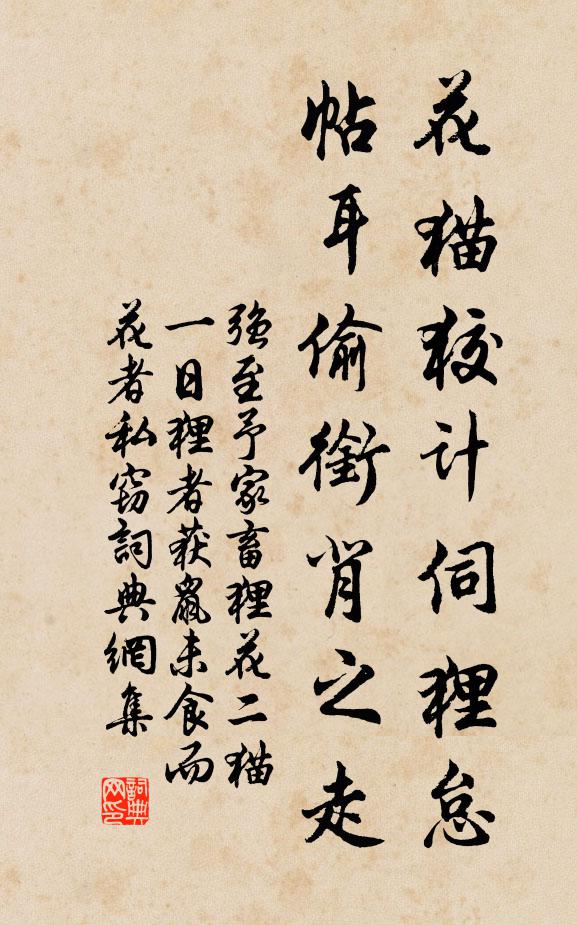 花猫狡计伺狸怠
帖耳偷銜背之走
强至予家畜狸花二猫
一日狸者获鼠未食而
花者私窃詞典網集
詞典網印